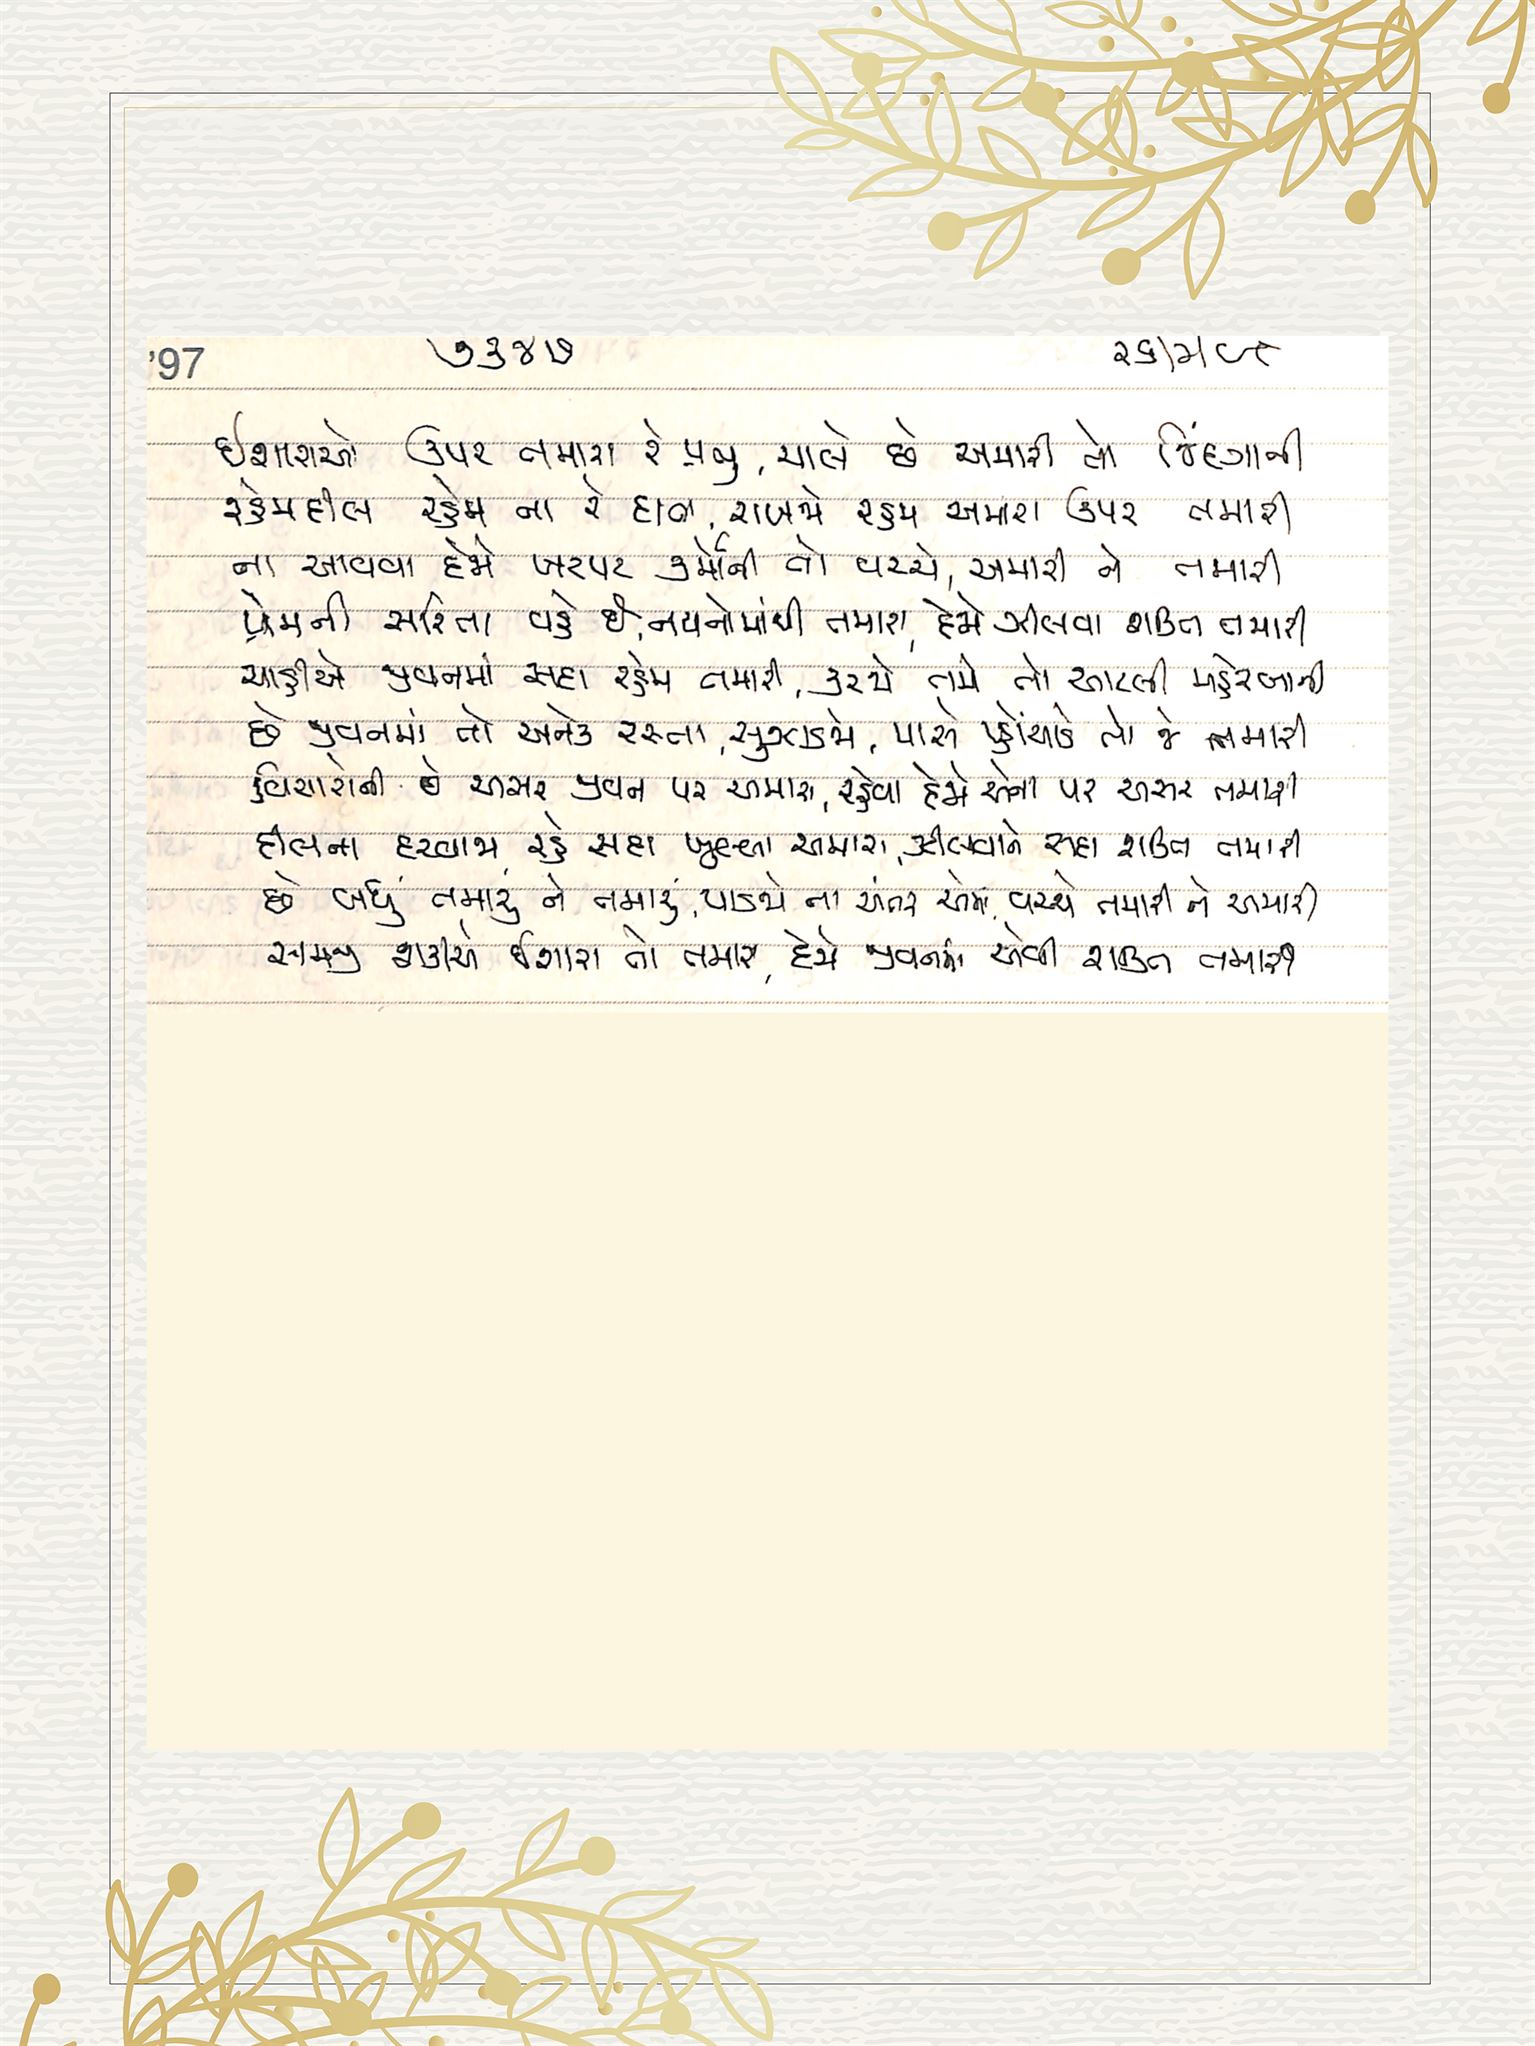 '97 ૭૩૪૭ ૨૬/૫/૯૮
ઈશારાઓ ઉપર તમારા રે પ્રભુ, ચાલે છે અમારી તો જિંદગાની
રહેમદીલ રહેમ ના રે દાતા, રાખજો રહેમ અમારા ઉપર તમારી
ના આવવા દેજો ખટપટ કર્મોની તો વચ્ચે, અમારી ને તમારી
પ્રેમની સરિતા વહે છે, નયનોમાંથી તમારા, દેજો ઝીલવા શક્તિ તમારી
ચાહીએ જીવનમાં સદા રહેમ તમારી, કરજો તમે તો આટલી મહેરબાની
છે જીવનમાં તો અનેક રસ્તા, સુઝાડજો, પાસે પહોંચાડે તો જે તમારી
વિચારોની છે અસર જીવન પર અમારા, રહેવા દેજો એના પર અસર તમારી
દીલના દરવાજા રહે સદા ખુલ્લા અમારા, ઝીલવાને સદા શક્તિ તમારી
છે બધું તમારું ને તમારું, પાડજો ના અંતર એમાં, વચ્ચે તમારી ને અમારી
સમજી શકીએ ઈશારા તો તમારા, દેજો જીવનમાં એવી શક્તિ તમારી